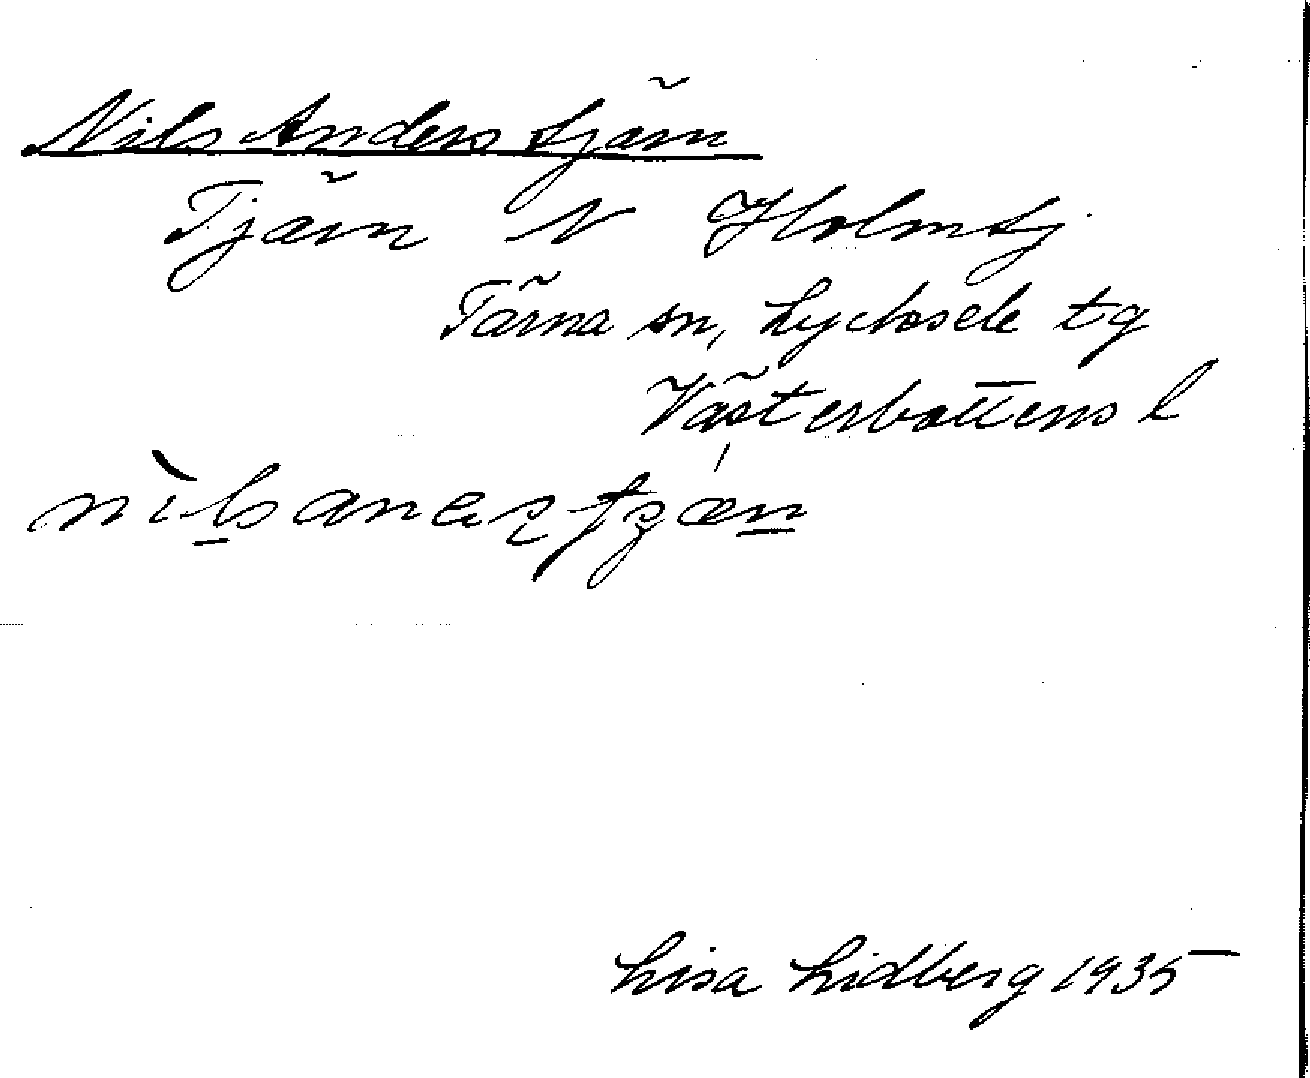 Nils Anders tjärn
Tjärn N Holmtj.
Tärna sn, Lycksele tg
Västerbottens l
Lisa Lidberg 1935